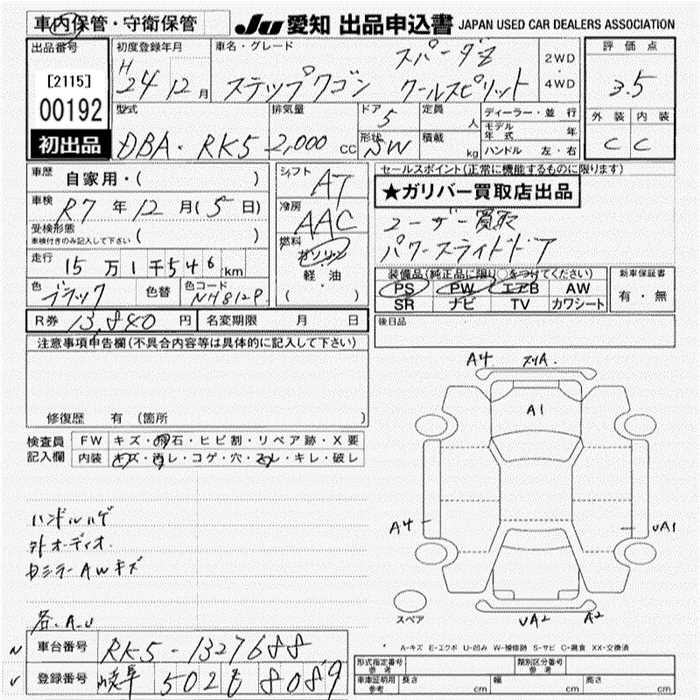 車内保管・守衛保管
JU 愛知 出品申込書 JAPAN USED CAR DEALERS ASSOCIATION
出品番号 初度登録年月 車名・グレード 評価点
[2115] 00192
H24年12月 ステップワゴン スパーダZ クールスピリット 2WD・4WD 3.5
型式 排気量 ドア 5 定員 人 ディーラー・並行 外装 内装
初出品 DBA・RK5 2,000cc 形状 SW 積載 kg モデル年式 年 C C
ハンドル 左・右
車歴 自家用・( ) シフト AT セールスポイント(正常に機能するものに限ります)
★ガリバー買取店出品
車検 R7年12月(5日) 冷房 AAC ユーザー買取
受検形態 ( ) パワースライドドア
車検付きのみ記入して下さい
燃料 ガソリン・軽油 ( )
走行 15万1千546km 装備品(純正品に限り○をつけてください) 新車保証書
PS PW エアB AW 有・無
色 ブラック 色替 色コード NH812P SR ナビ TV カワシート
R券 13,840円 名変期限 月 日 後日品
注意事項申告欄(不具合内容等は具体的に記入して下さい)
A4
A1
修復歴 有 (箇所 )
検査員記入欄 FW キズ・飛石・ヒビ割・リペア跡・X要
内装 キズ・汚レ・コゲ・穴・スレ・キレ・破レ
ハンドルハゲ
外オーディオ
A4 UA1
カシラーAWキズ
各.A.U
スペア UA2 A2
A-キズ E-エクボ U-凹み W-補修跡 S-サビ C-腐食 XX-交換済
車台番号 RK5-1327688
型式指定番号 参考 類別区分番号 参考
登録番号 岐阜 502 8089
車庫証明用 参考 長さ cm 幅 cm 高さ cm